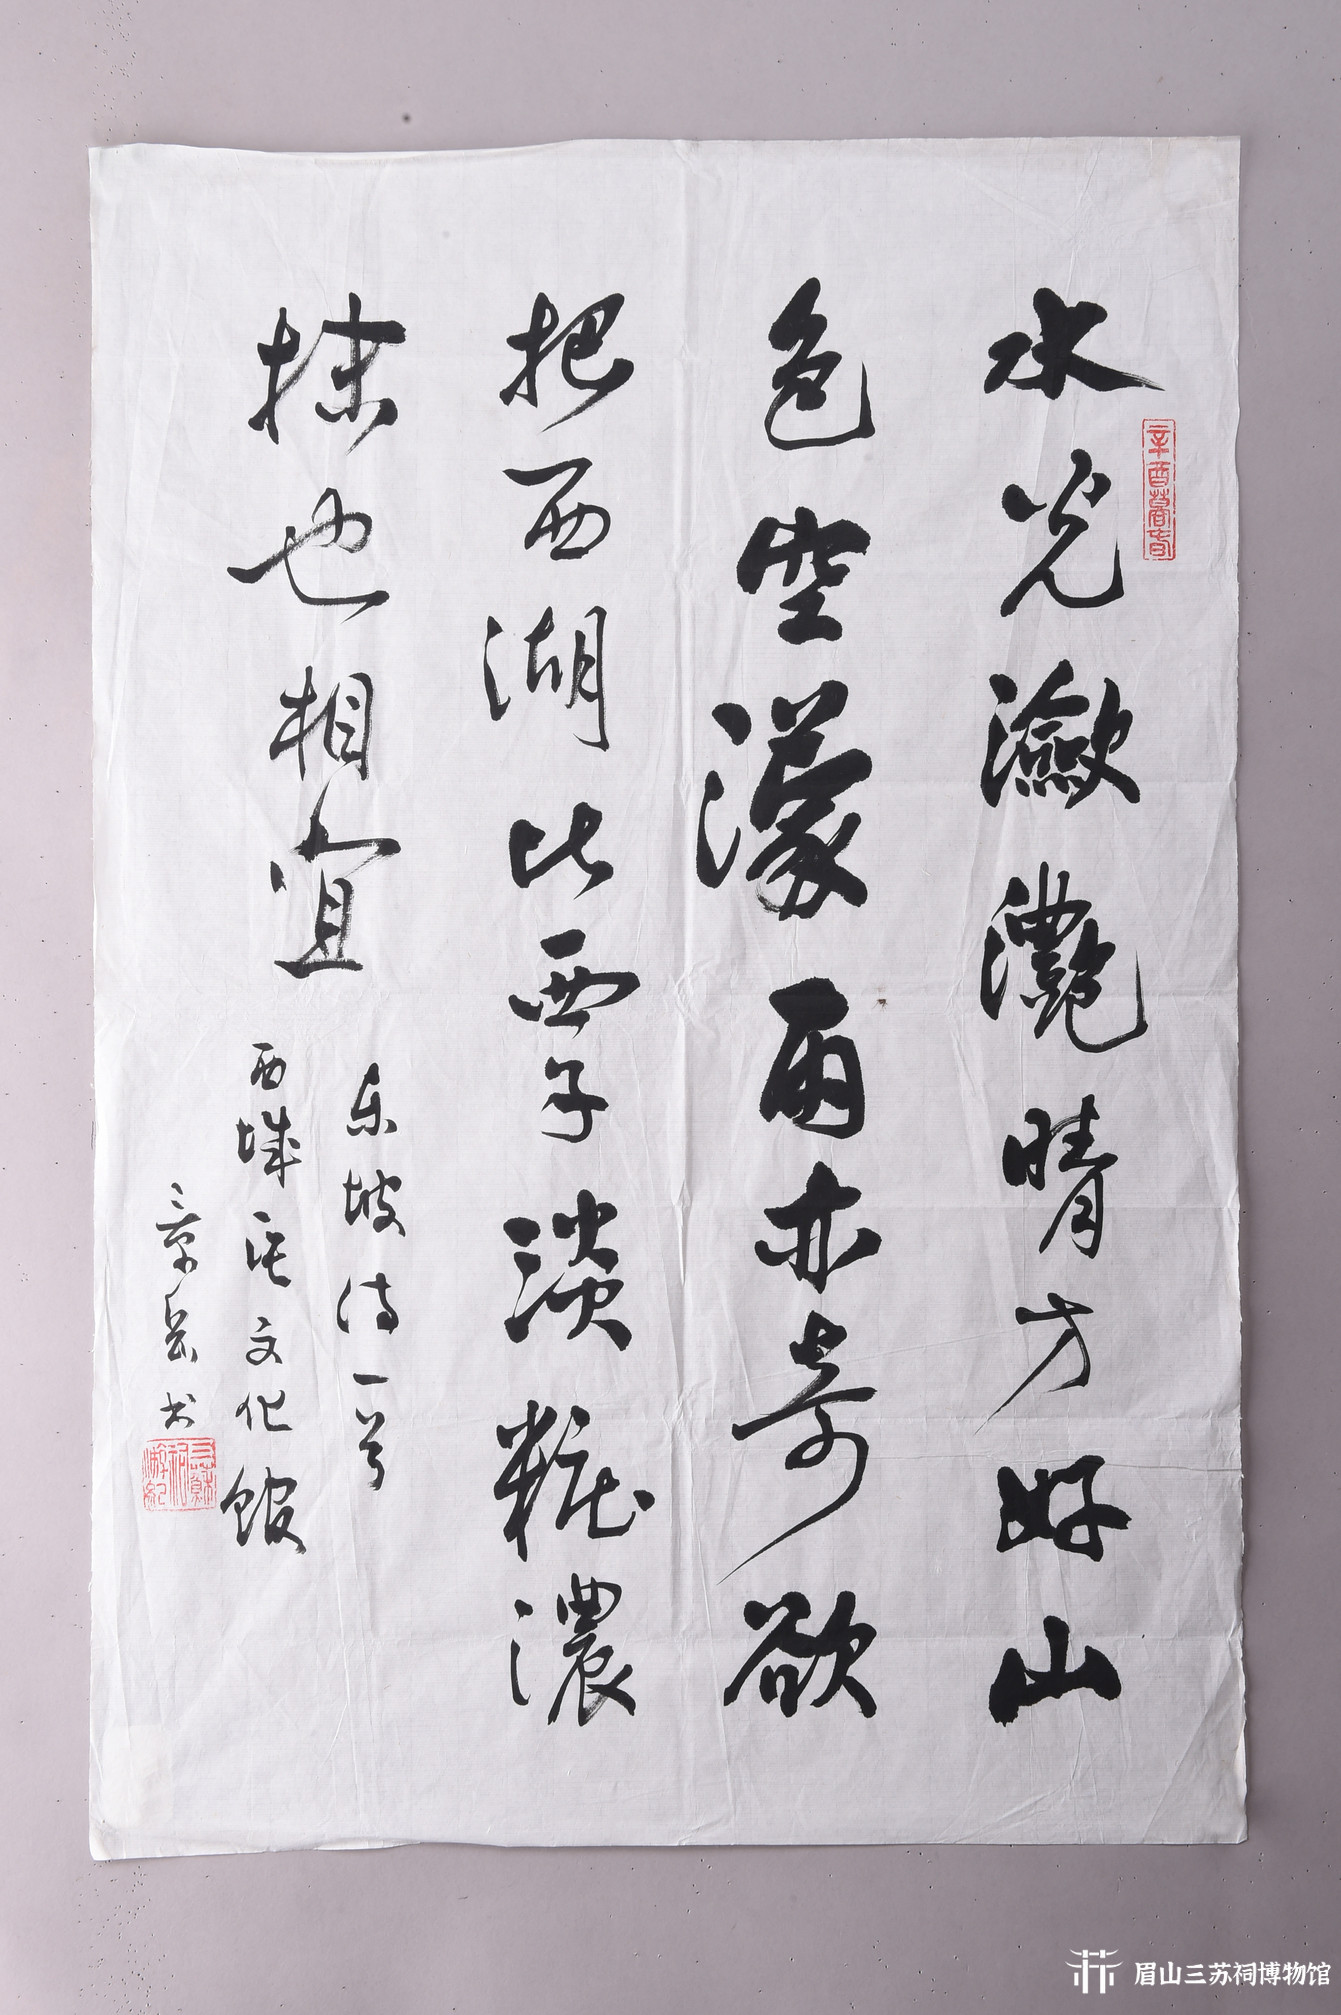 水光瀲灧晴方好山
色空濛雨亦奇欲
把西湖比西子淡粧濃
抹也相宜
东坡诗一首
西城区文化馆
景岳书
辛酉暮春
三蘇祠游紀
眉山三苏祠博物馆